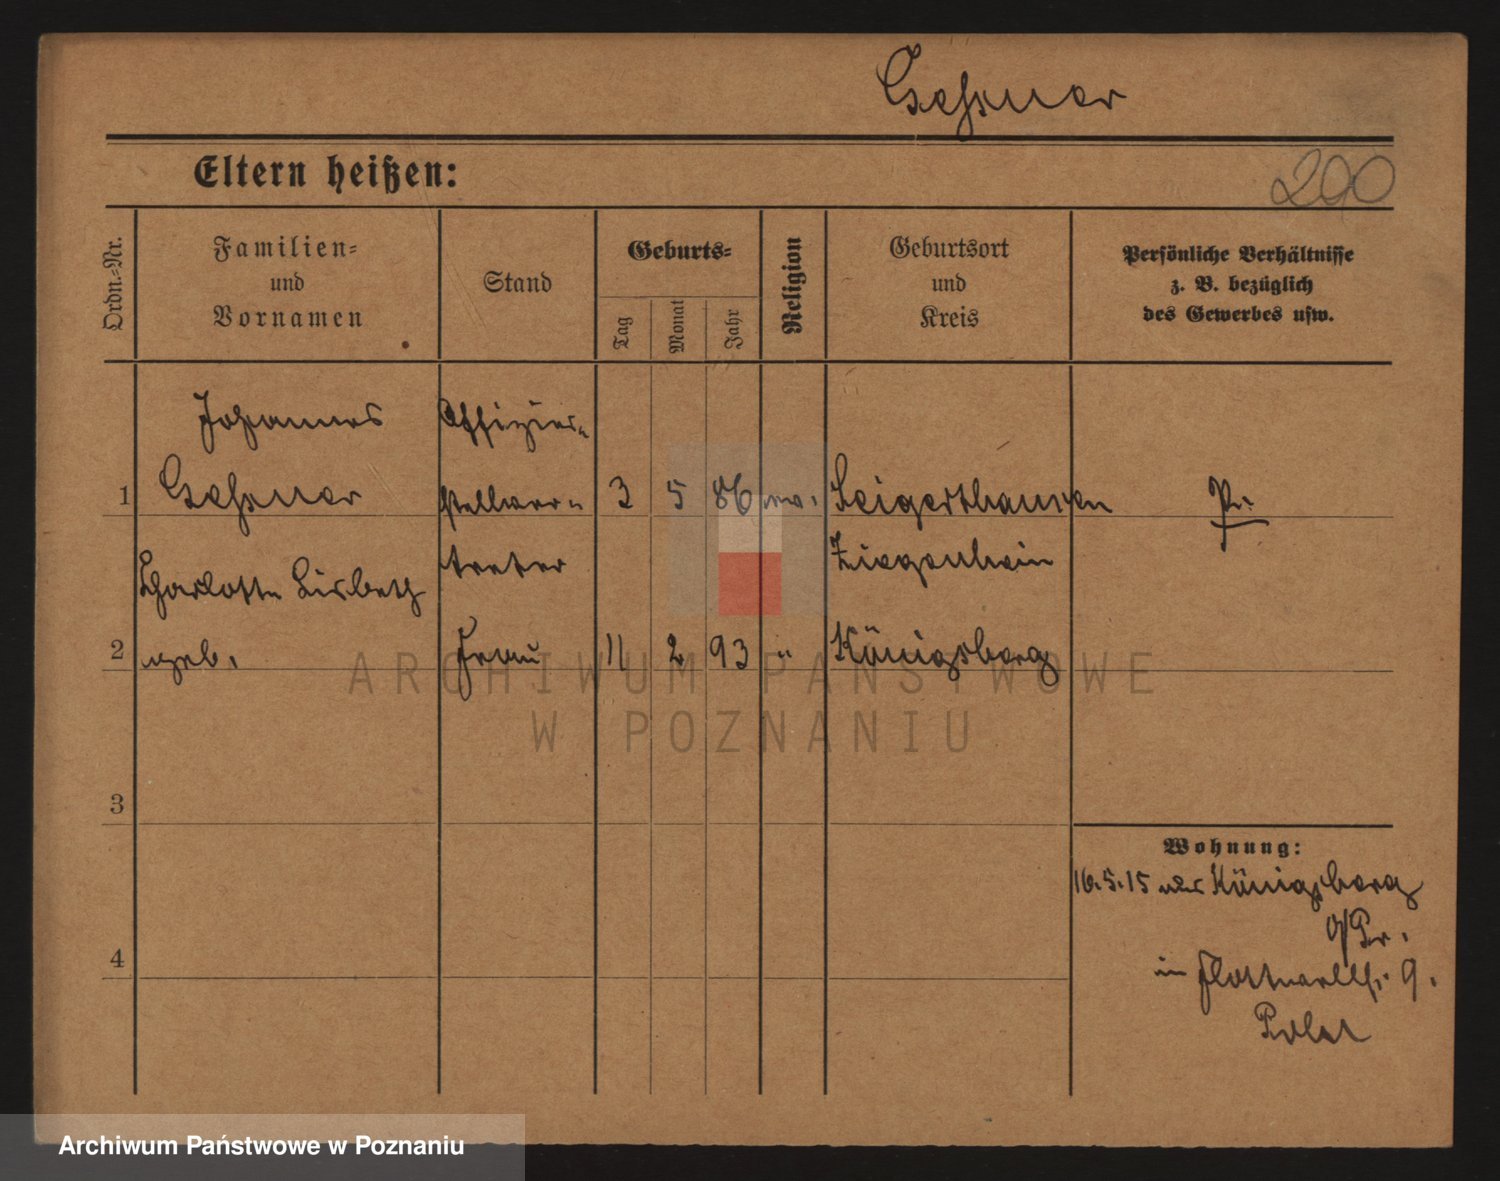 Gessner
Eltern heißen:
200
Ordn.=Nr.
Familien=
und
Vornamen
Stand
Geburts=
Tag
Monat
Jahr
Religion
Geburtsort
und
Kreis
Persönliche Verhältnisse
z. B. bezüglich
des Gewerbes usw.
Johannes
Gessner
Offizier-
stellver-
treter
1
3
5
86
ev.
Seigertshausen
Ziegenhain
P.
Charlotte Lisbeth
geb.
2
Frau
11
2
93
"
Königsberg
3
4
Wohnung:
16.5.15 aus Königsberg
o/Pr.
in Flottwellst. 9.
ARCHIWUM PAŃSTWOWE
W POZNANIU
Archiwum Państwowe w Poznaniu